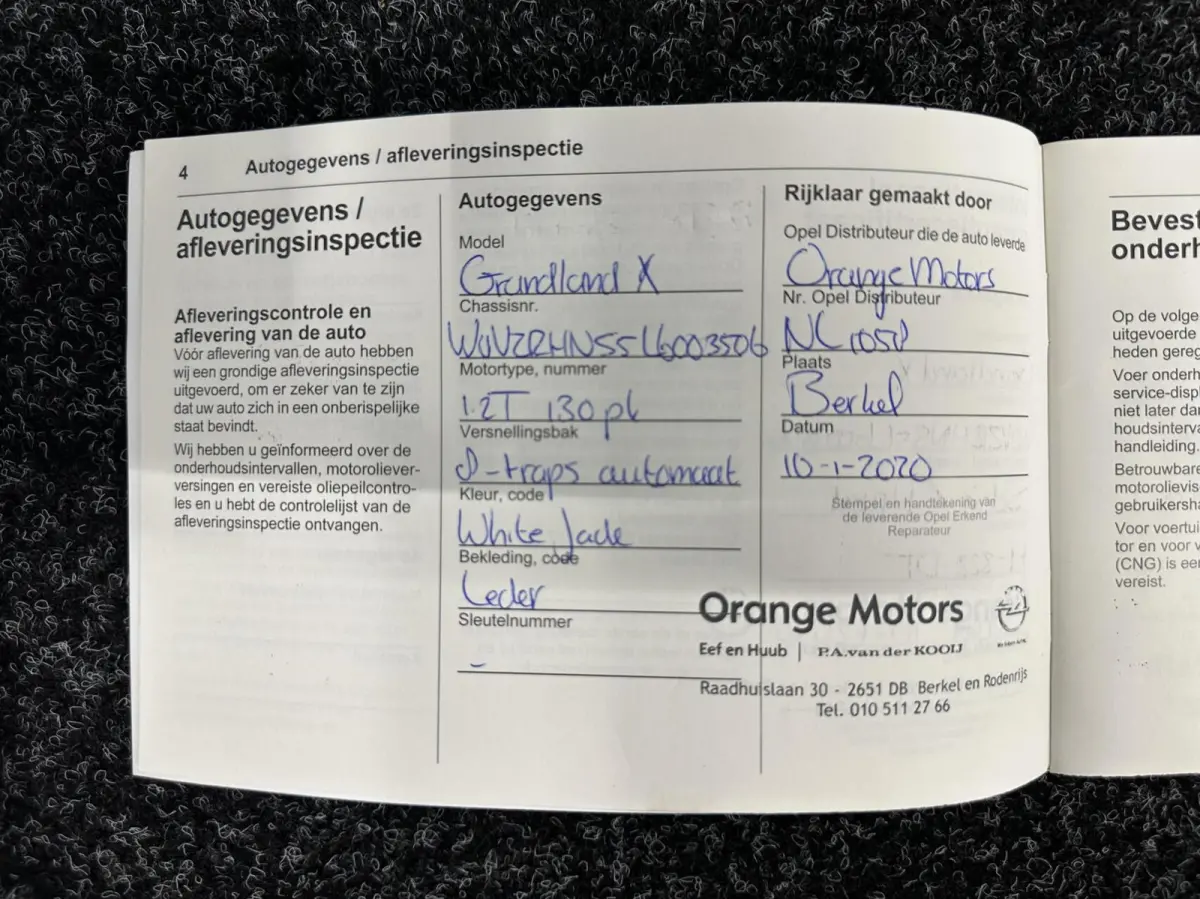 4 Autogegevens / afleveringsinspectie
Autogegevens /
afleveringsinspectie
Afleveringscontrole en
aflevering van de auto
Vóór aflevering van de auto hebben
wij een grondige afleveringsinspectie
uitgevoerd, om er zeker van te zijn
dat uw auto zich in een onberispelijke
staat bevindt.
Wij hebben u geïnformeerd over de
onderhoudsintervallen, motoroliever-
versingen en vereiste oliepeilcontro-
les en u hebt de controlelijst van de
afleveringsinspectie ontvangen.
Autogegevens
Model
Grandland X
Chassisnr.
W0VZRHNS5L6003506
Motortype, nummer
1.2T 130 pk
Versnellingsbak
8-traps automaat
Kleur, code
White Jade
Bekleding, code
Leder
Sleutelnummer
-
Rijklaar gemaakt door
Opel Distributeur die de auto leverde
Orange Motors
Nr. Opel Distributeur
NC 1058
Plaats
Berkel
Datum
10-1-2020
Stempel en handtekening van
de leverende Opel Erkend
Reparateur
Orange Motors
Eef en Huub | P.A. van der KOOIJ
Raadhuislaan 30 - 2651 DB Berkel en Rodenrijs
Tel. 010 511 27 66
Bevest
onderh
Op de volge
uitgevoerde
heden gereg
Voer onderh
service-disp
niet later dan
houdsinterva
handleiding.
Betrouwbare
motorolievis
gebruikersha
Voor voertui
tor en voor v
(CNG) is een
vereist.